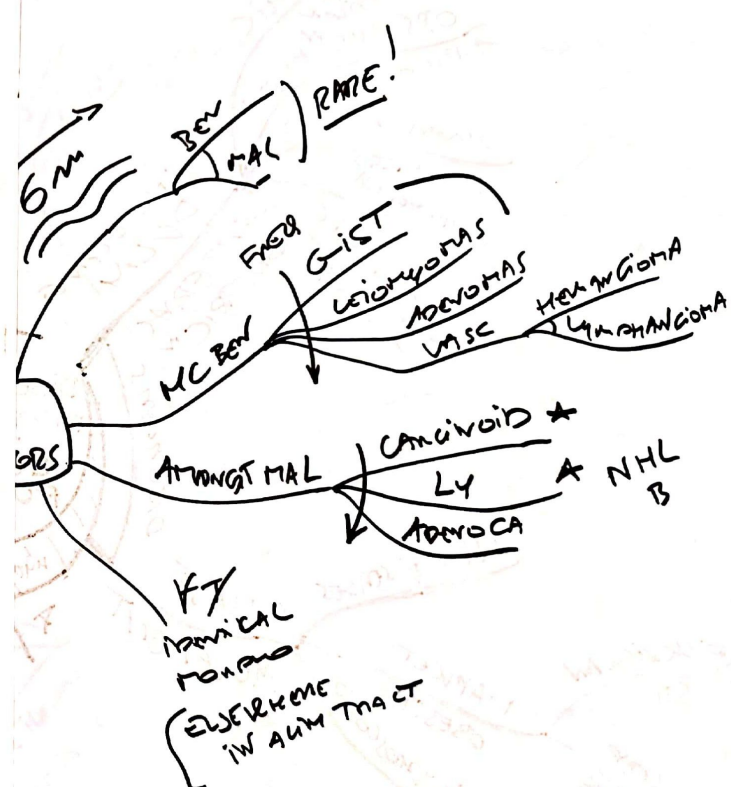 6 m
BEN
MAL
RARE!
FREQ
MC BEN
GIST
LEIOMYOMAS
ADENOMAS
VASC
HEMANGIOMA
LYMPHANGIOMA
ORS
AMONGT MAL
CARCINOID ★
LY ★ NHL
B
ADENOCA
IDENTICAL
MORPHO
ELSEWHERE
IN ALIM TRACT